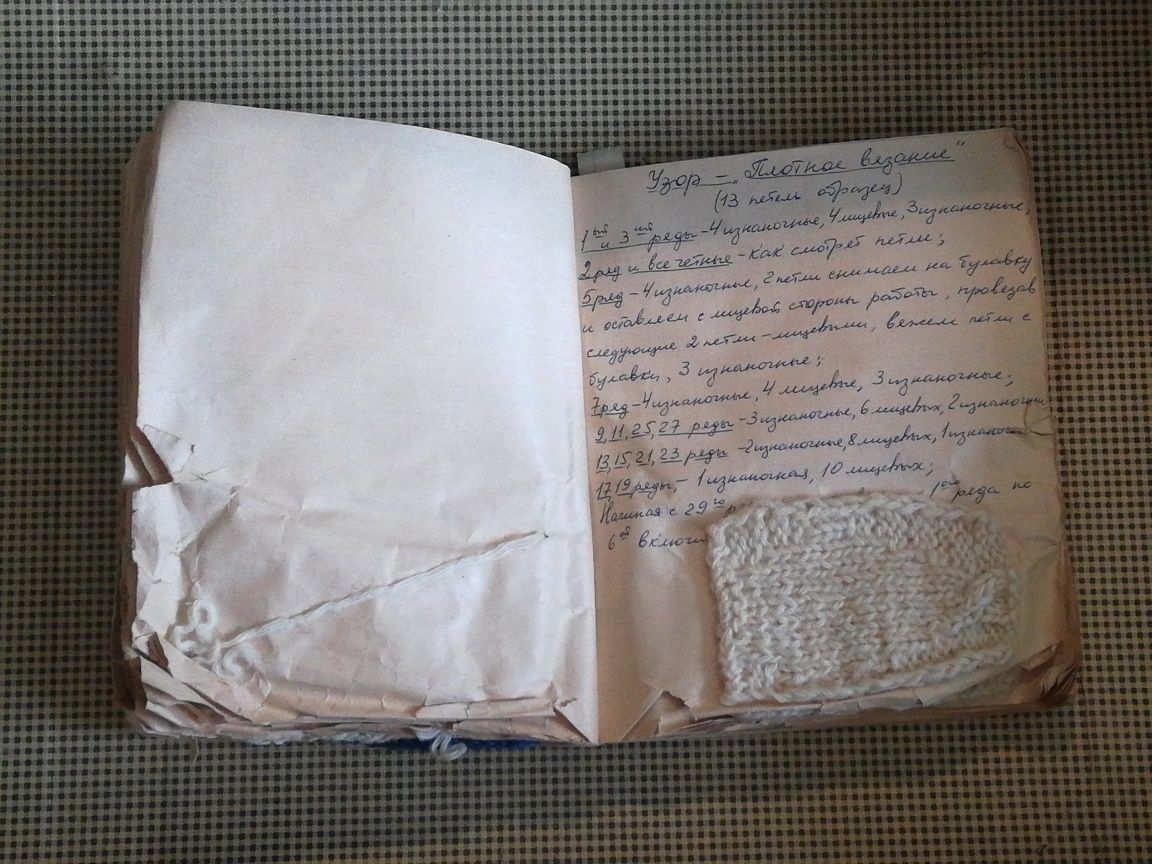 Узор – „Плотное вязание"
(13 петель образец)
1ый и 3ий ряды – 4 изнаночные, 4 лицевые, 3 изнаночные;
2 ряд и все чётные – как смотрят петли;
5 ряд – 4 изнаночные, 2 петли снимаем на булавку
и оставляем с лицевой стороны работы, провязав
следующие 2 петли – лицевыми, вяжем петли с
булавки, 3 изнаночные;
7 ряд – 4 изнаночные, 4 лицевые, 3 изнаночные;
9, 11, 25, 27 ряды – 3 изнаночные, 6 лицевых, 2 изнаночные
13, 15, 21, 23 ряды – 2 изнаночные, 8 лицевых, 1 изнаночная
17, 19 ряды, – 1 изнаночная, 10 лицевых;
Начиная с 29го 1ого ряда по
6ой